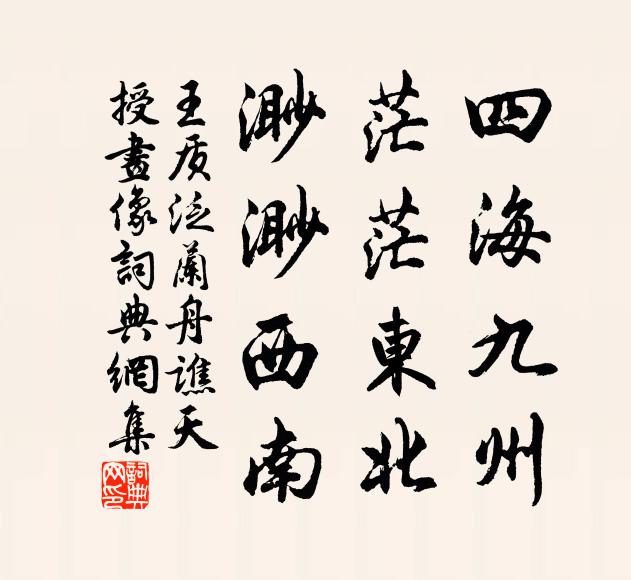 四海九州
茫茫東北
渺渺西南
王质泛蘭舟譙天
授畫像詞典網集
詞典网印